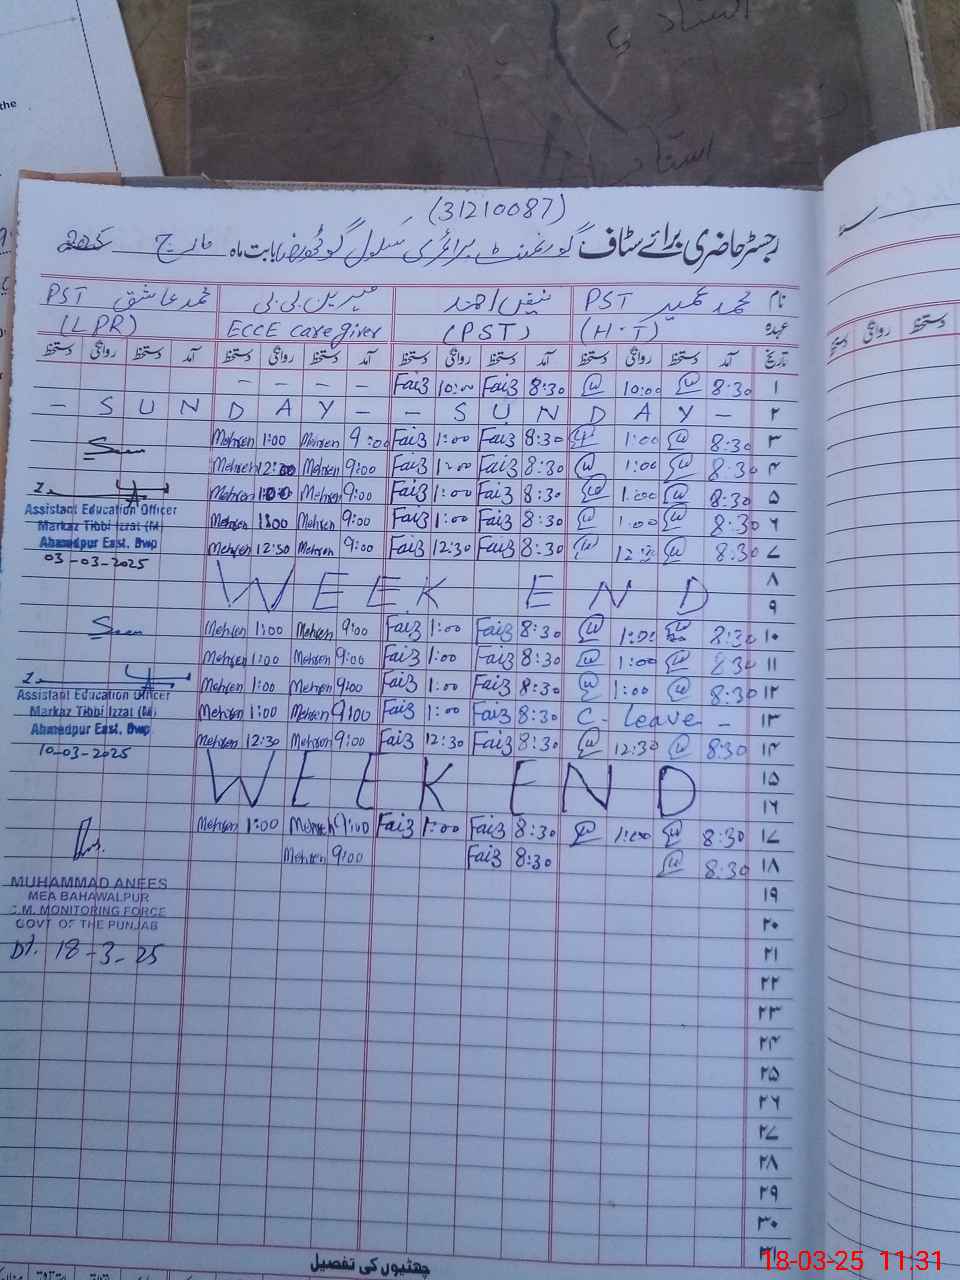 استاد
استاد
the
(31210087)
رجسٹر حاضری برائے سٹاف گورنمنٹ پرائمری سکول بابت ماہ مارچ 2025
نام محمد عمیر PST نفیس احمد مہرین بی بی محمد عاشق PST
عہدہ (H.T) (PST) ECCE Care Giver (LPR)
تاریخ آمد دستخط روانگی دستخط آمد دستخط روانگی دستخط آمد دستخط روانگی دستخط آمد دستخط روانگی دستخط
– – – – Faiz 10:00 Faiz 8:30 10:00 8:30 ۱
– S U N D A Y – – S U N D A Y – ۲
Mehren 1:00 Mehren 9:00 Faiz 1:00 Faiz 8:30 1:00 8:30 ۳
Mehren 12:00 Mehren 9:00 Faiz 1:00 Faiz 8:30 1:00 8:30 ۴
Mehren 1:00 Mehren 9:00 Faiz 1:00 Faiz 8:30 1:00 8:30 ۵
Assistant Education Officer
Mehren 1:00 Mehren 9:00 Faiz 1:00 Faiz 8:30 1:00 8:30 ۶
Markaz Tibbi Izzat (M)
Ahmedpur East. Bwp
Mehren 12:30 Mehren 9:00 Faiz 12:30 Faiz 8:30 12:30 8:30 ۷
03-03-2025
WEEK END ۸
۹
Mehren 1:00 Mehren 9:00 Faiz 1:00 Faiz 8:30 1:00 8:30 ۱۰
Mehren 1:00 Mehren 9:00 Faiz 1:00 Faiz 8:30 1:00 8:30 ۱۱
Mehren 1:00 Mehren 9:00 Faiz 1:00 Faiz 8:30 1:00 8:30 ۱۲
Assistant Education Officer
Markaz Tibbi Izzat (M)
Mehren 1:00 Mehren 9:00 Faiz 1:00 Faiz 8:30 C- Leave – ۱۳
Ahmedpur East. Bwp
Mehren 12:30 Mehren 9:00 Faiz 12:30 Faiz 8:30 12:30 8:30 ۱۴
10-03-2025
WEEK END ۱۵
۱۶
Mehren 1:00 Mehren 9:00 Faiz 1:00 Faiz 8:30 1:00 8:30 ۱۷
Mehren 9:00 Faiz 8:30 8:30 ۱۸
MUHAMMAD ANEES
MEA BAHAWALPUR
۱۹
C.M. MONITORING FORCE
GOVT OF THE PUNJAB
۲۰
Dt. 18-3-25
۲۱
۲۲
۲۳
۲۴
۲۵
۲۶
۲۷
۲۸
۲۹
۳۰
۳۱
چھٹیوں کی تفصیل
18-03-25 11:31